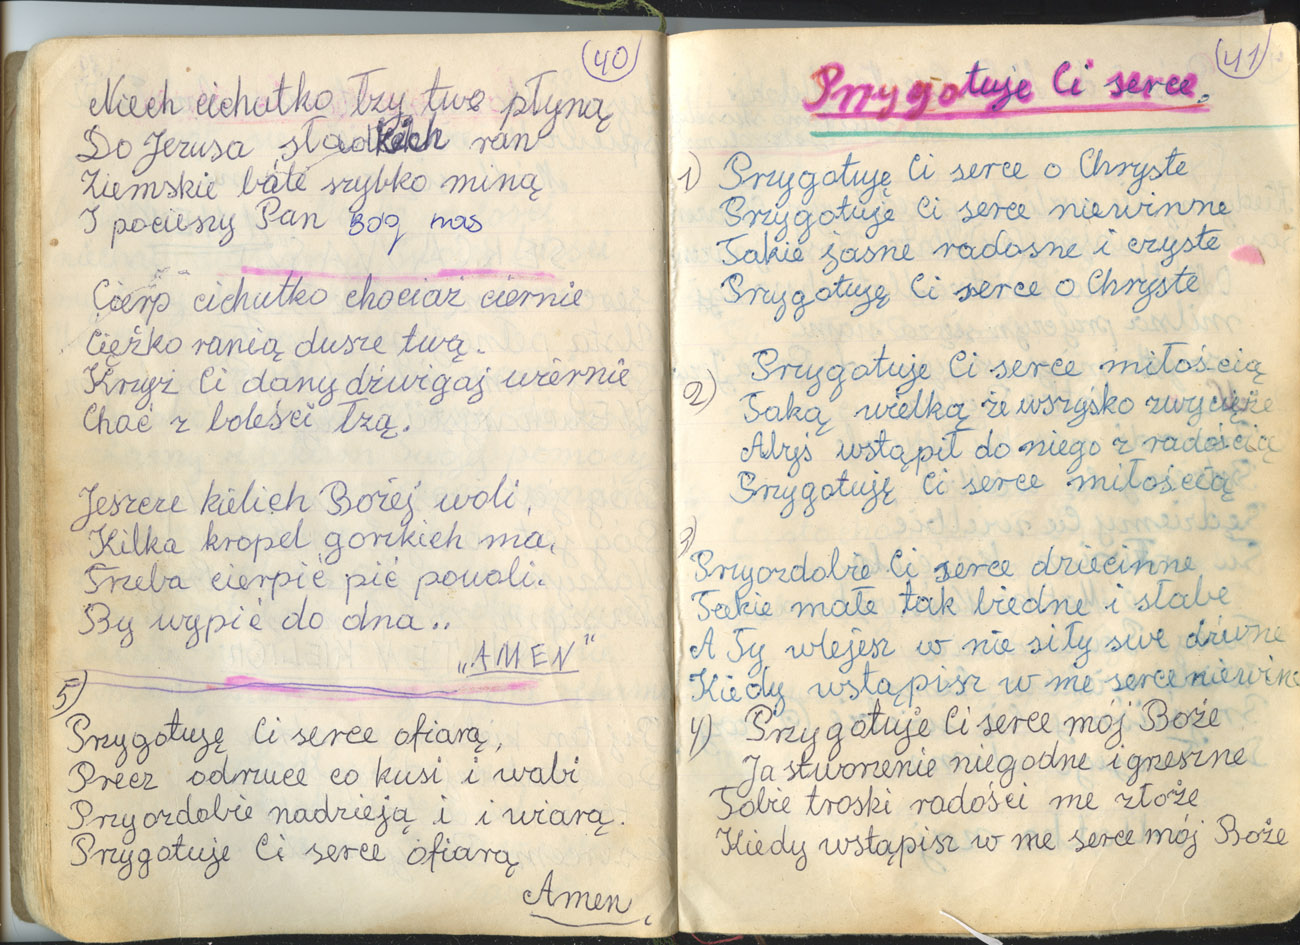 40
Niech cichutko łzy twe płyną
Do Jezusa słodkich ran
Ziemskie bóle szybko miną
I pocieszy Pan Bóg nas
Cierp cichutko chociaż ciernie
Ciężko ranią dusze twą.
Krzyż Ci dany dźwigaj wiernie
Choć z boleści łzą.
Jeszcze kielich Bożej woli,
Kilka kropel gorzkich ma,
Trzeba cierpić pić powoli.
By wypić do dna..
„AMEN”
5)
Przygotuję Ci serce ofiarą,
Precz odrzuce co kusi i wabi
Przyozdobie nadzieją i i wiarą.
Przygotuje Ci serce ofiarą
Amen.
41
Przygotuje Ci serce.
1) Przygotuję Ci serce o Chryste
Przygotuje Ci serce niewinne
Takie jasne radosne i czyste
Przygotuję Ci serce o Chryste
2) Przygotuje Ci serce miłością
Taką wielką że wszysko zwycięże
Abyś wstąpił do niego z radością
Przygotuję Ci serce miłością
3)
Przyozdobie Ci serce dziecinne
Takie małe tak biedne i słabe
A Ty wlejesz w nie siły swe dziwne
Kiedy wstąpisz w me serce niewinne
4) Przygotuje Ci serce mój Boże
Ja stworzenie niegodne i grzeszne
Tobie troski radości me złoże
Kiedy wstąpisz w me serce mój Boże